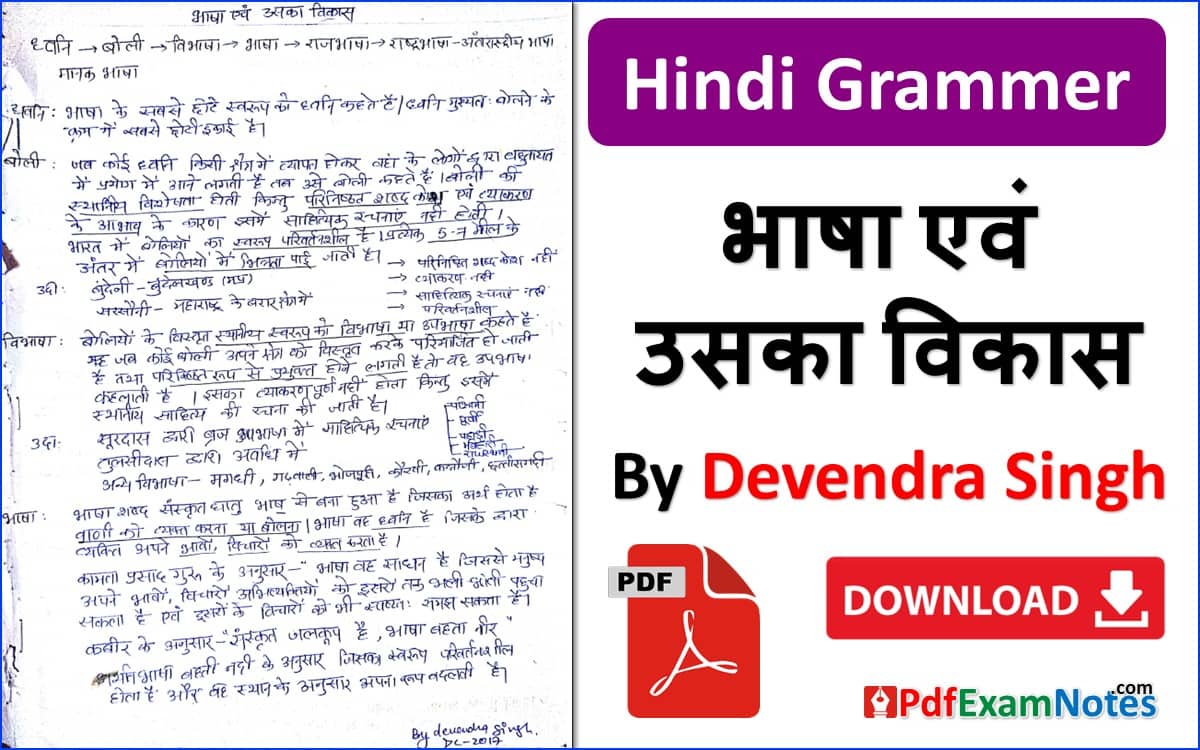 भाषा एवं उसका विकास
ध्वनि → बोली → विभाषा → भाषा → राजभाषा → राष्ट्रभाषा - अंतरराष्ट्रीय भाषा
मानक भाषा
ध्वनि : भाषा के सबसे छोटे स्वरूप को ध्वनि कहते हैं। ध्वनि मुख्यतः बोलने के
क्रम में सबसे छोटी इकाई है।
बोली : जब कोई ध्वनि किसी क्षेत्र में व्याप्त होकर वहां के लोगों द्वारा बहुतायत
में प्रयोग में आने लगती है तब उसे बोली कहते हैं। बोली की
स्थानीय विशेषता होती किन्तु परिनिष्ठित शब्द कोश एवं व्याकरण
के आभाव के कारण इसमें साहित्यिक रचनाएं नहीं होती।
भारत में बोलियों का स्वरूप परिवर्तनशील है। प्रत्येक 5-7 मील के
अंतर में बोलियों में भिन्नता पाई जाती है।
→ परिनिष्ठित शब्द कोश नहीं
→ व्याकरण नहीं
→ साहित्यिक रचनाएं नहीं
→ परिवर्तनशील
उदा: बुंदेली - बुंदेलखण्ड (मप्र)
महाराष्ट्र के बरार क्षेत्र में
विभाषा : बोलियों के विस्तृत स्थानीय स्वरूप को विभाषा या उपभाषा कहते हैं
जब कोई बोली अपने क्षेत्र को विस्तृत करके परिमार्जित हो जाती
है तथा परिनिष्ठित रूप से प्रयुक्त होने लगती है तो वह उपभाषा
कहलाती है। इसका व्याकरण पूर्ण नहीं होता किन्तु इसमें
स्थानीय साहित्य की रचना की जाती है।
पश्चिमी
पूर्वी
पहाड़ी
राजस्थानी
उदा: सूरदास द्वारा ब्रज उपभाषा में साहित्यिक रचनाएं
तुलसीदास द्वारा अवधि में
अन्य विभाषा - मगधी, गढ़वाली, भोजपुरी, कौरवी, कन्नौजी, छत्तीसगढ़ी
भाषा : भाषा शब्द संस्कृत धातु भाष् से बना हुआ है जिसका अर्थ होता है
वाणी को व्यक्त करना या बोलना। भाषा वह ध्वनि है जिसके द्वारा
व्यक्ति अपने भावों, विचारों को व्यक्त करता है।
कामता प्रसाद गुरु के अनुसार - "भाषा वह साधन है जिससे मनुष्य
अपने भावों, विचारों अभिव्यक्तियों को दूसरों तक भली भांती पहुंचा
सकता है एवं दूसरों के विचारों को भी स्पष्टतः समझ सकता है।
कबीर के अनुसार - "संस्कृत जलकूप है, भाषा बहता नीर"
भाषा बहती नदी के अनुसार जिसका स्वरूप परिवर्तनशील
होता है और वह स्थान के अनुसार अपना रूप बदलती है।
By devendra singh.
DC-2017
Hindi Grammer
भाषा एवं
उसका विकास
By Devendra Singh
PDF
DOWNLOAD
PdfExamNotes.com